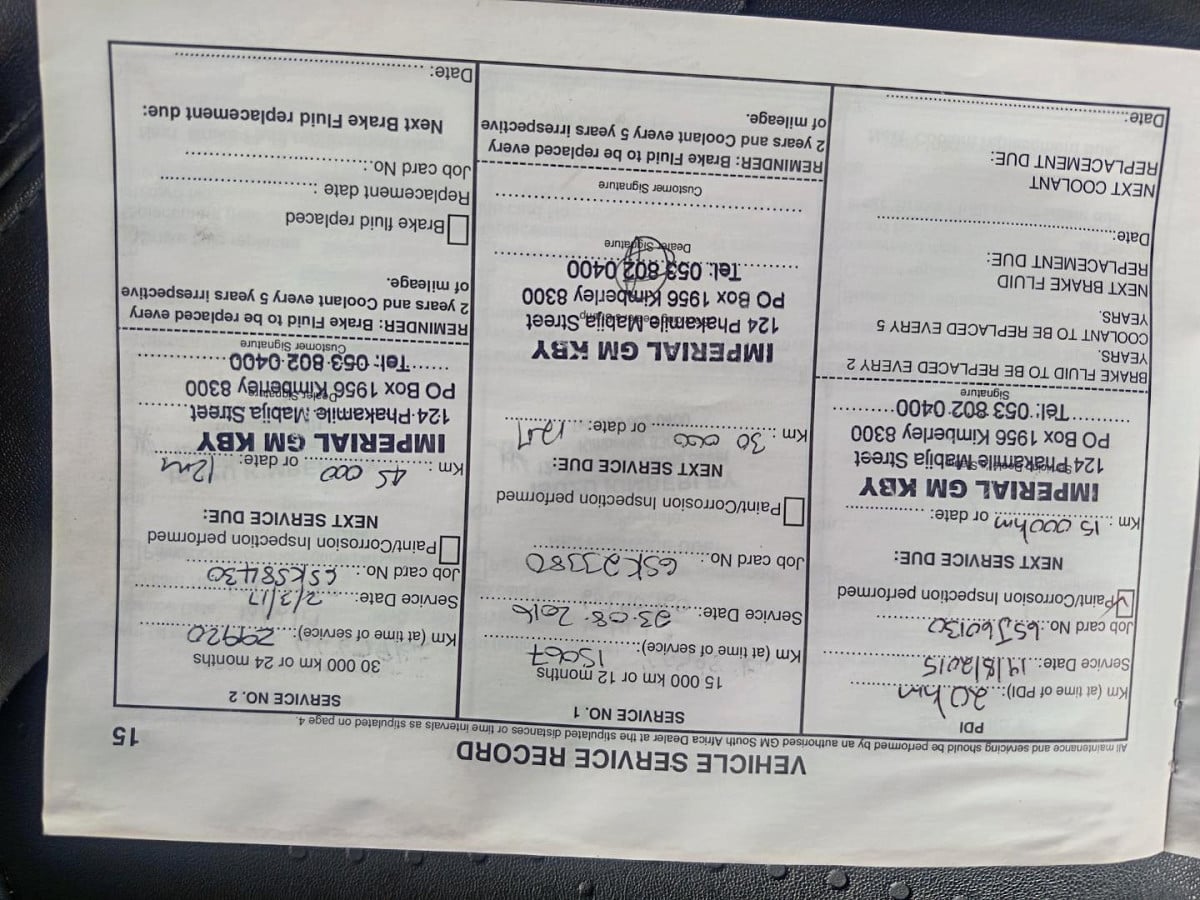 VEHICLE SERVICE RECORD
15
All maintenance and servicing should be performed by an authorised GM South Africa Dealer at the stipulated distances or time intervals as stipulated on page 4.
PDI
Km (at time of PDI):20km
Service Date:19/8/2015
Job card No.:GSJ60130
Paint/Corrosion Inspection performed
NEXT SERVICE DUE:
Km : 15 000km or date:
IMPERIAL GM KBY
124 Phakamile Mabija Street
PO Box 1956 Kimberley 8300
Tel: 053 802 0400
Signature
BRAKE FLUID TO BE REPLACED EVERY 2
YEARS.
COOLANT TO BE REPLACED EVERY 5
YEARS.
NEXT BRAKE FLUID
REPLACEMENT DUE:
Date:
NEXT COOLANT
REPLACEMENT DUE:
Date:
SERVICE NO. 1
15 000 km or 12 months
Km (at time of service): 15067
Service Date: 23.08.2016
Job card No.: GSK23380
Paint/Corrosion Inspection performed
NEXT SERVICE DUE:
Km : 30 000 or date:
IMPERIAL GM KBY
124 Phakamile Mabija Street
PO Box 1956 Kimberley 8300
Tel: 053 802 0400
Dealer Signature
Customer Signature
REMINDER: Brake Fluid to be replaced every
2 years and Coolant every 5 years irrespective
of mileage.
SERVICE NO. 2
30 000 km or 24 months
Km (at time of service): 29920
Service Date: 2/3/17
Job card No.: GSK58430
Paint/Corrosion Inspection performed
NEXT SERVICE DUE:
Km : 45 000 or date:
IMPERIAL GM KBY
124 Phakamile Mabija Street
PO Box 1956 Kimberley 8300
Dealer Signature
Tel: 053 802 0400
Customer Signature
REMINDER: Brake Fluid to be replaced every
2 years and Coolant every 5 years irrespective
of mileage.
Brake fluid replaced
Replacement date :
Job card No.:
Next Brake Fluid replacement due:
Date: